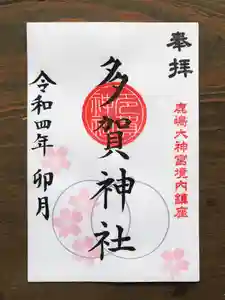 奉拝
鹿嶋大神宮境内鎮座
多賀神社
令和四年 卯月